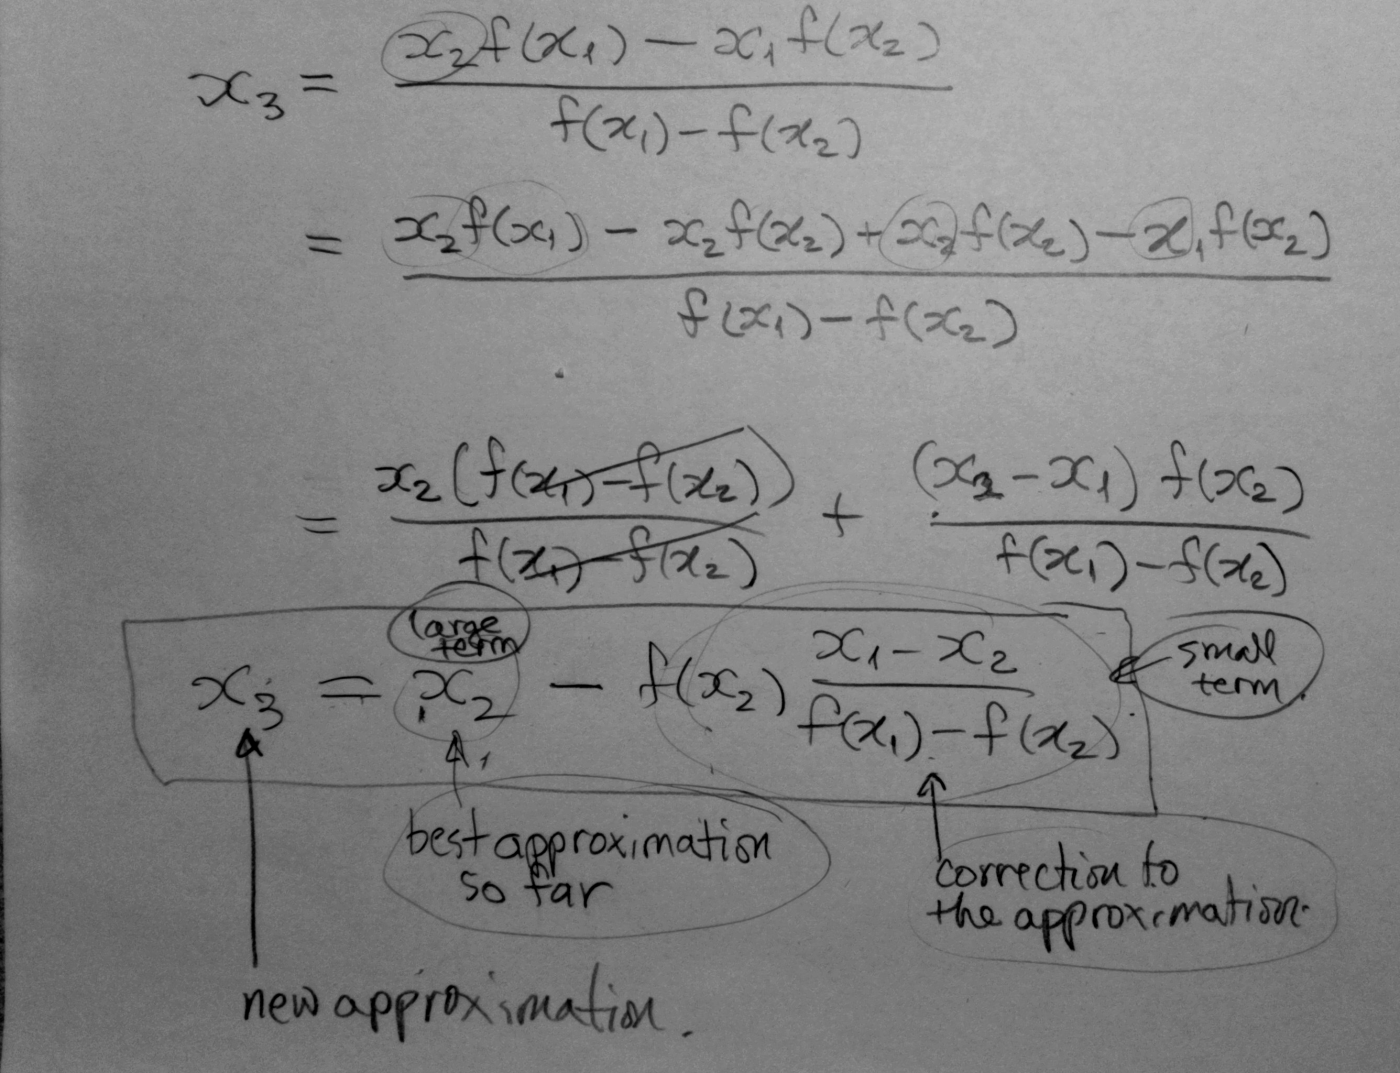 x₃ = (x₂f(x₁) − x₁f(x₂)) / (f(x₁) − f(x₂))
= (x₂f(x₁) − x₂f(x₂) + x₂f(x₂) − x₁f(x₂)) / (f(x₁) − f(x₂))
= x₂(f(x₁) − f(x₂)) / (f(x₁) − f(x₂)) + (x₂ − x₁) f(x₂) / (f(x₁) − f(x₂))
large
term
x₃ = x₂ − f(x₂) (x₁ − x₂) / (f(x₁) − f(x₂))
small
term.
best approximation
so far
correction to
the approximation.
new approximation.